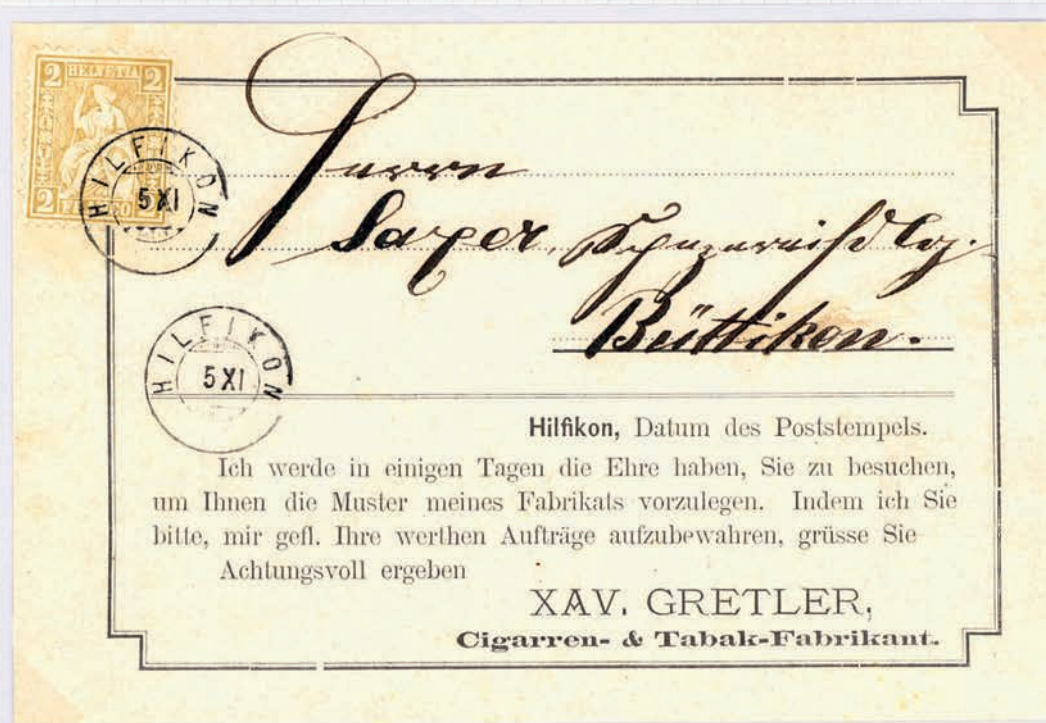 2 HELVETIA 2
HILFIKON
5 XI
2 2
Herrn
Saxer,
Büttikon.
HILFIKON
5 XI
Hilfikon, Datum des Poststempels.
Ich werde in einigen Tagen die Ehre haben, Sie zu besuchen,
um Ihnen die Muster meines Fabrikats vorzulegen. Indem ich Sie
bitte, mir gefl. Ihre werthen Aufträge aufzubewahren, grüsse Sie
Achtungsvoll ergeben
XAV. GRETLER,
Cigarren- & Tabak-Fabrikant.